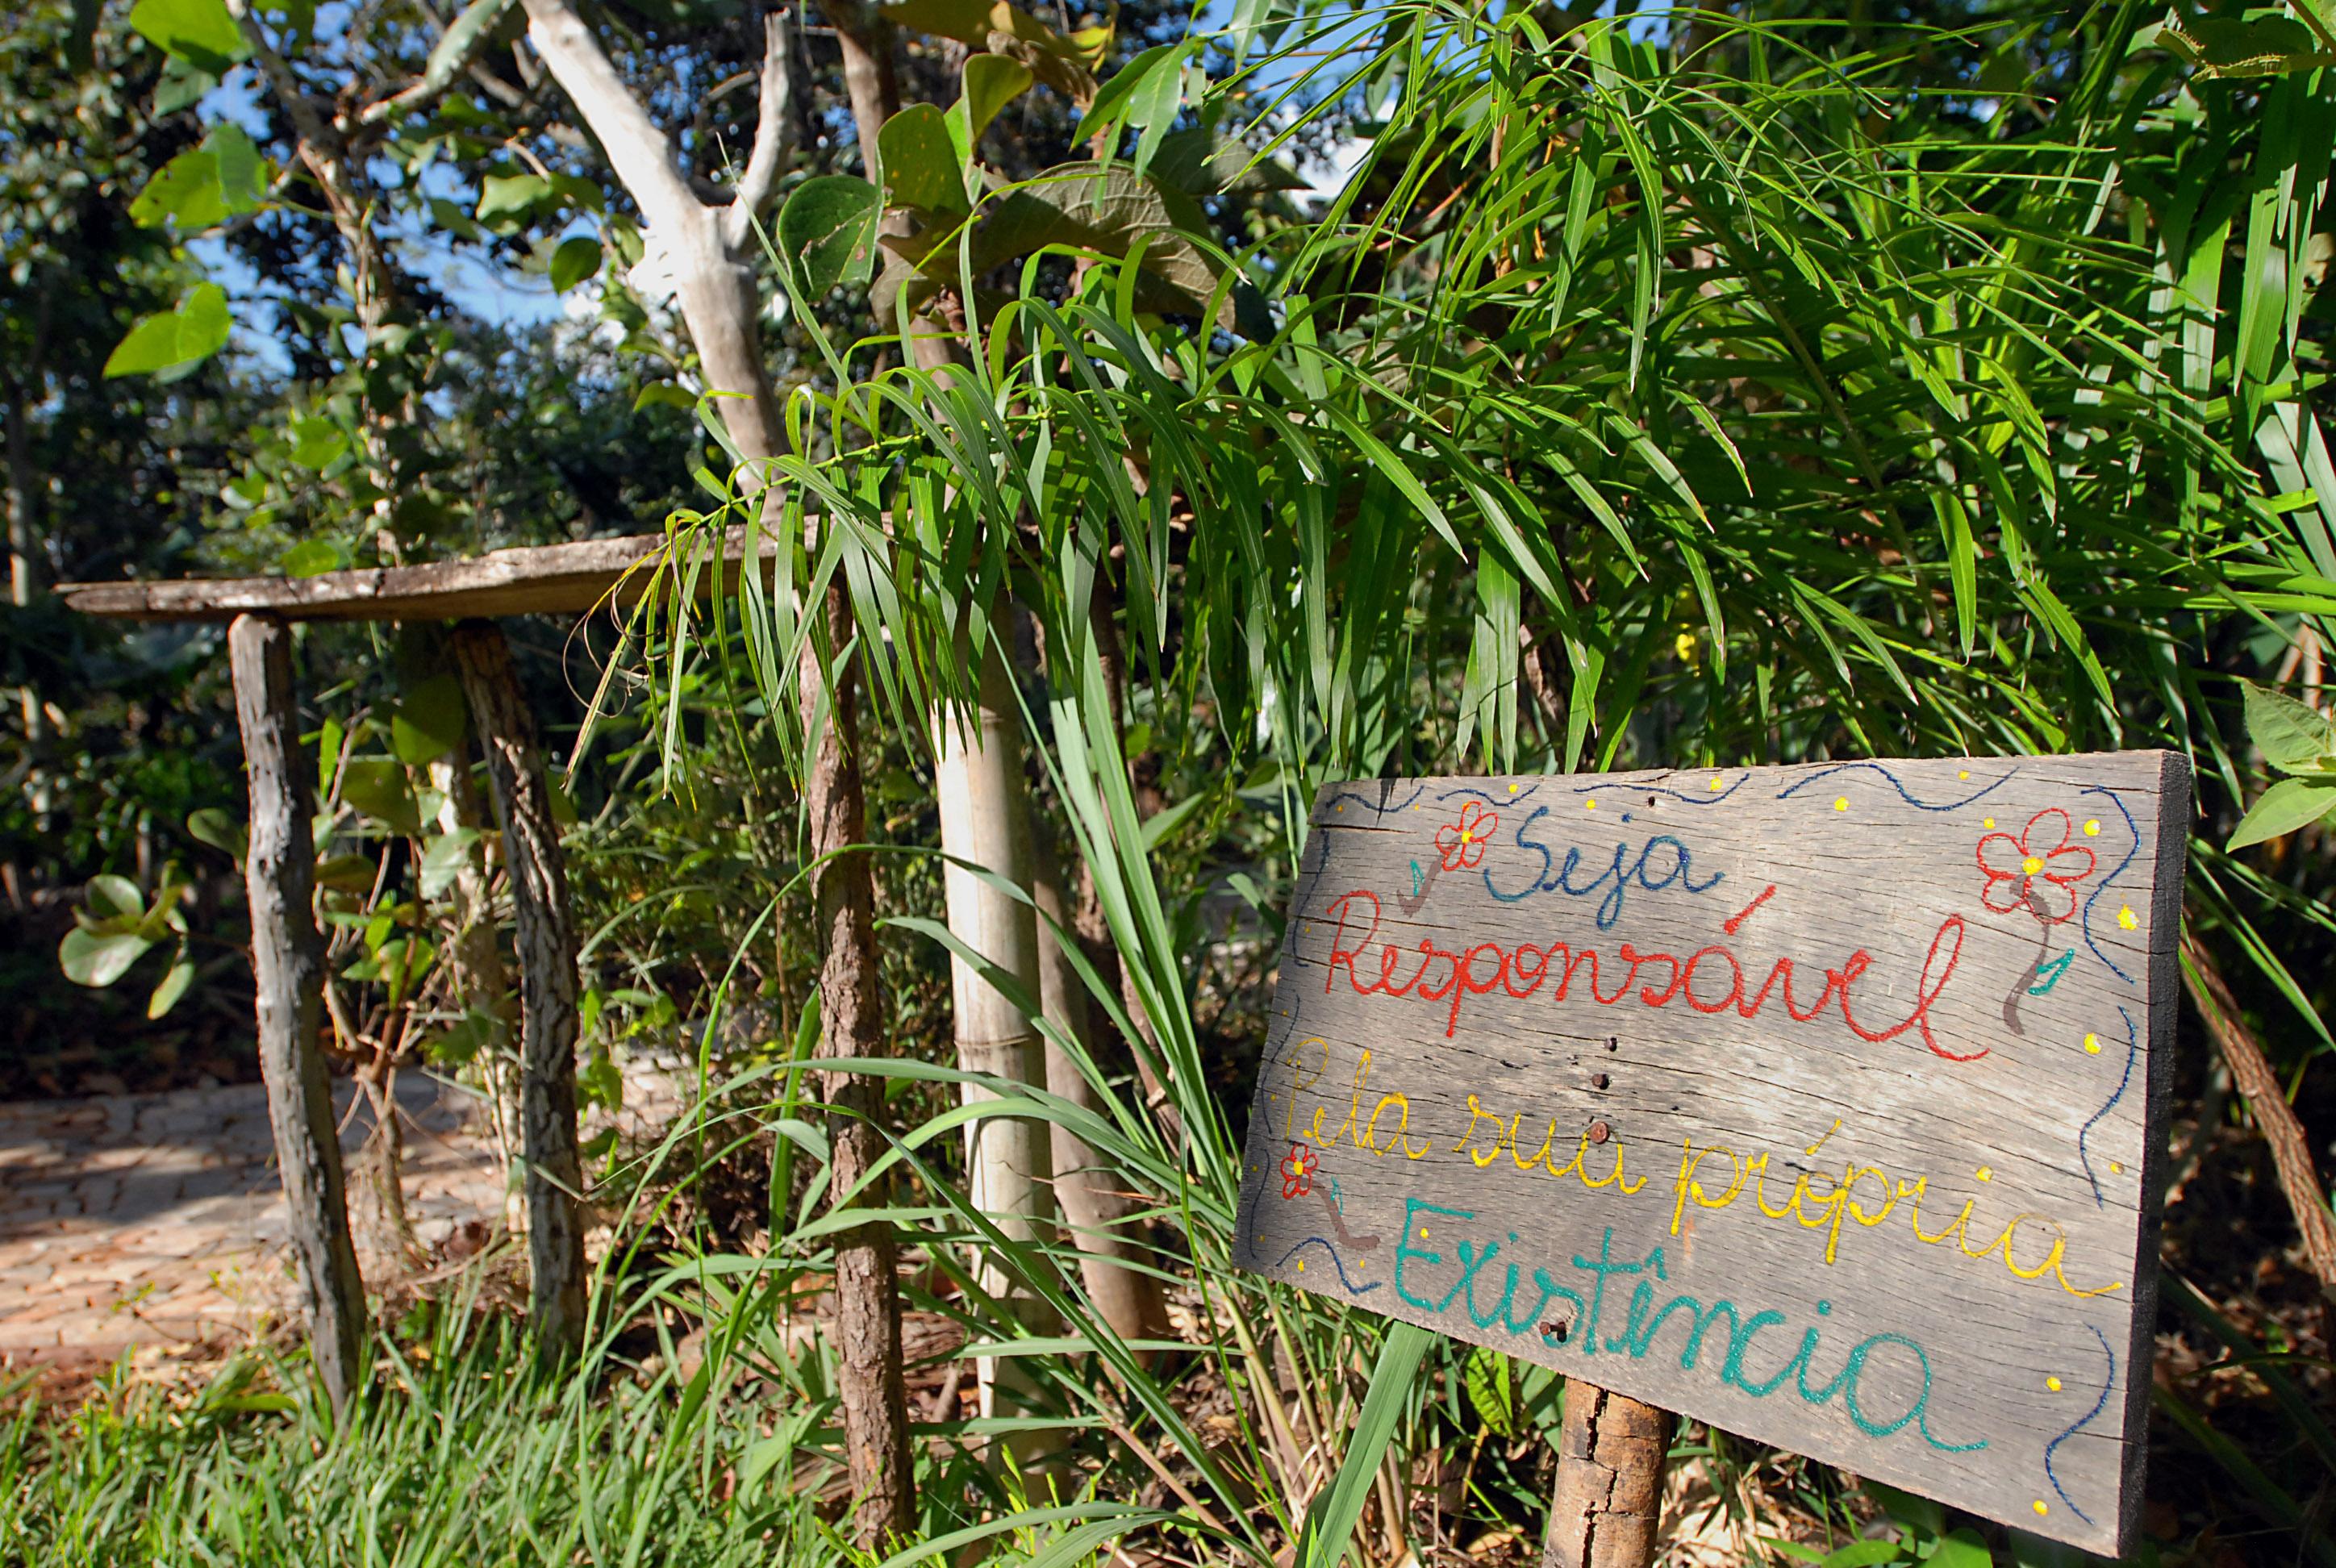 Seja
Responsável
Pela sua própria
Existência